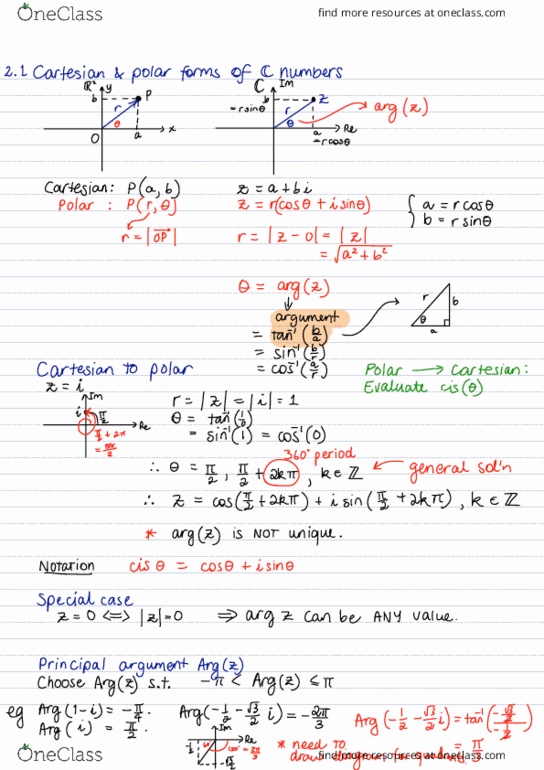 OneClass
find more resources at oneclass.com
2.1 Cartesian & polar forms of ℂ numbers
ℝ² y
b P
r
θ
O a x
ℂ Im
= rsinθ b z
r
θ
arg(z)
a Re
= rcosθ
Cartesian: P(a, b) z = a + bi
Polar : P(r, θ) z = r(cosθ + i sinθ) { a = r cosθ
b = r sinθ
r = |OP| r = |z - 0| = |z|
= √a² + b²
θ = arg(z)
argument
= tan⁻¹(b/a)
= sin⁻¹(b/r)
= cos⁻¹(a/r)
r b
θ
a
Cartesian to polar
Polar → Cartesian:
Evaluate cis(θ)
z = i
Im
i π/2
Re
π/2 + 2π
= 5π/2
r = |z| = |i| = 1
θ = tan⁻¹(1/0)
= sin⁻¹(1) = cos⁻¹(0)
360° period
∴ θ = π/2, π/2 + 2kπ, k ∈ ℤ ← general sol'n
∴ z = cos(π/2 + 2kπ) + i sin(π/2 + 2kπ), k ∈ ℤ
* arg(z) is NOT unique.
Notation cis θ = cosθ + i sinθ
Special case
z = 0 ⟺ |z| = 0 ⇒ arg z can be ANY value.
Principal argument Arg(z)
Choose Arg(z) s.t. -π < Arg(z) ≤ π
eg Arg(1-i) = -π/4. Arg(-1/2 - √3/2 i) = -2π/3
Arg(i) = π/2.
Arg(-1/2 - √3/2 i) = tan⁻¹(
= π/3
Im
Re
* need to
OneClass
find more resources at oneclass.com